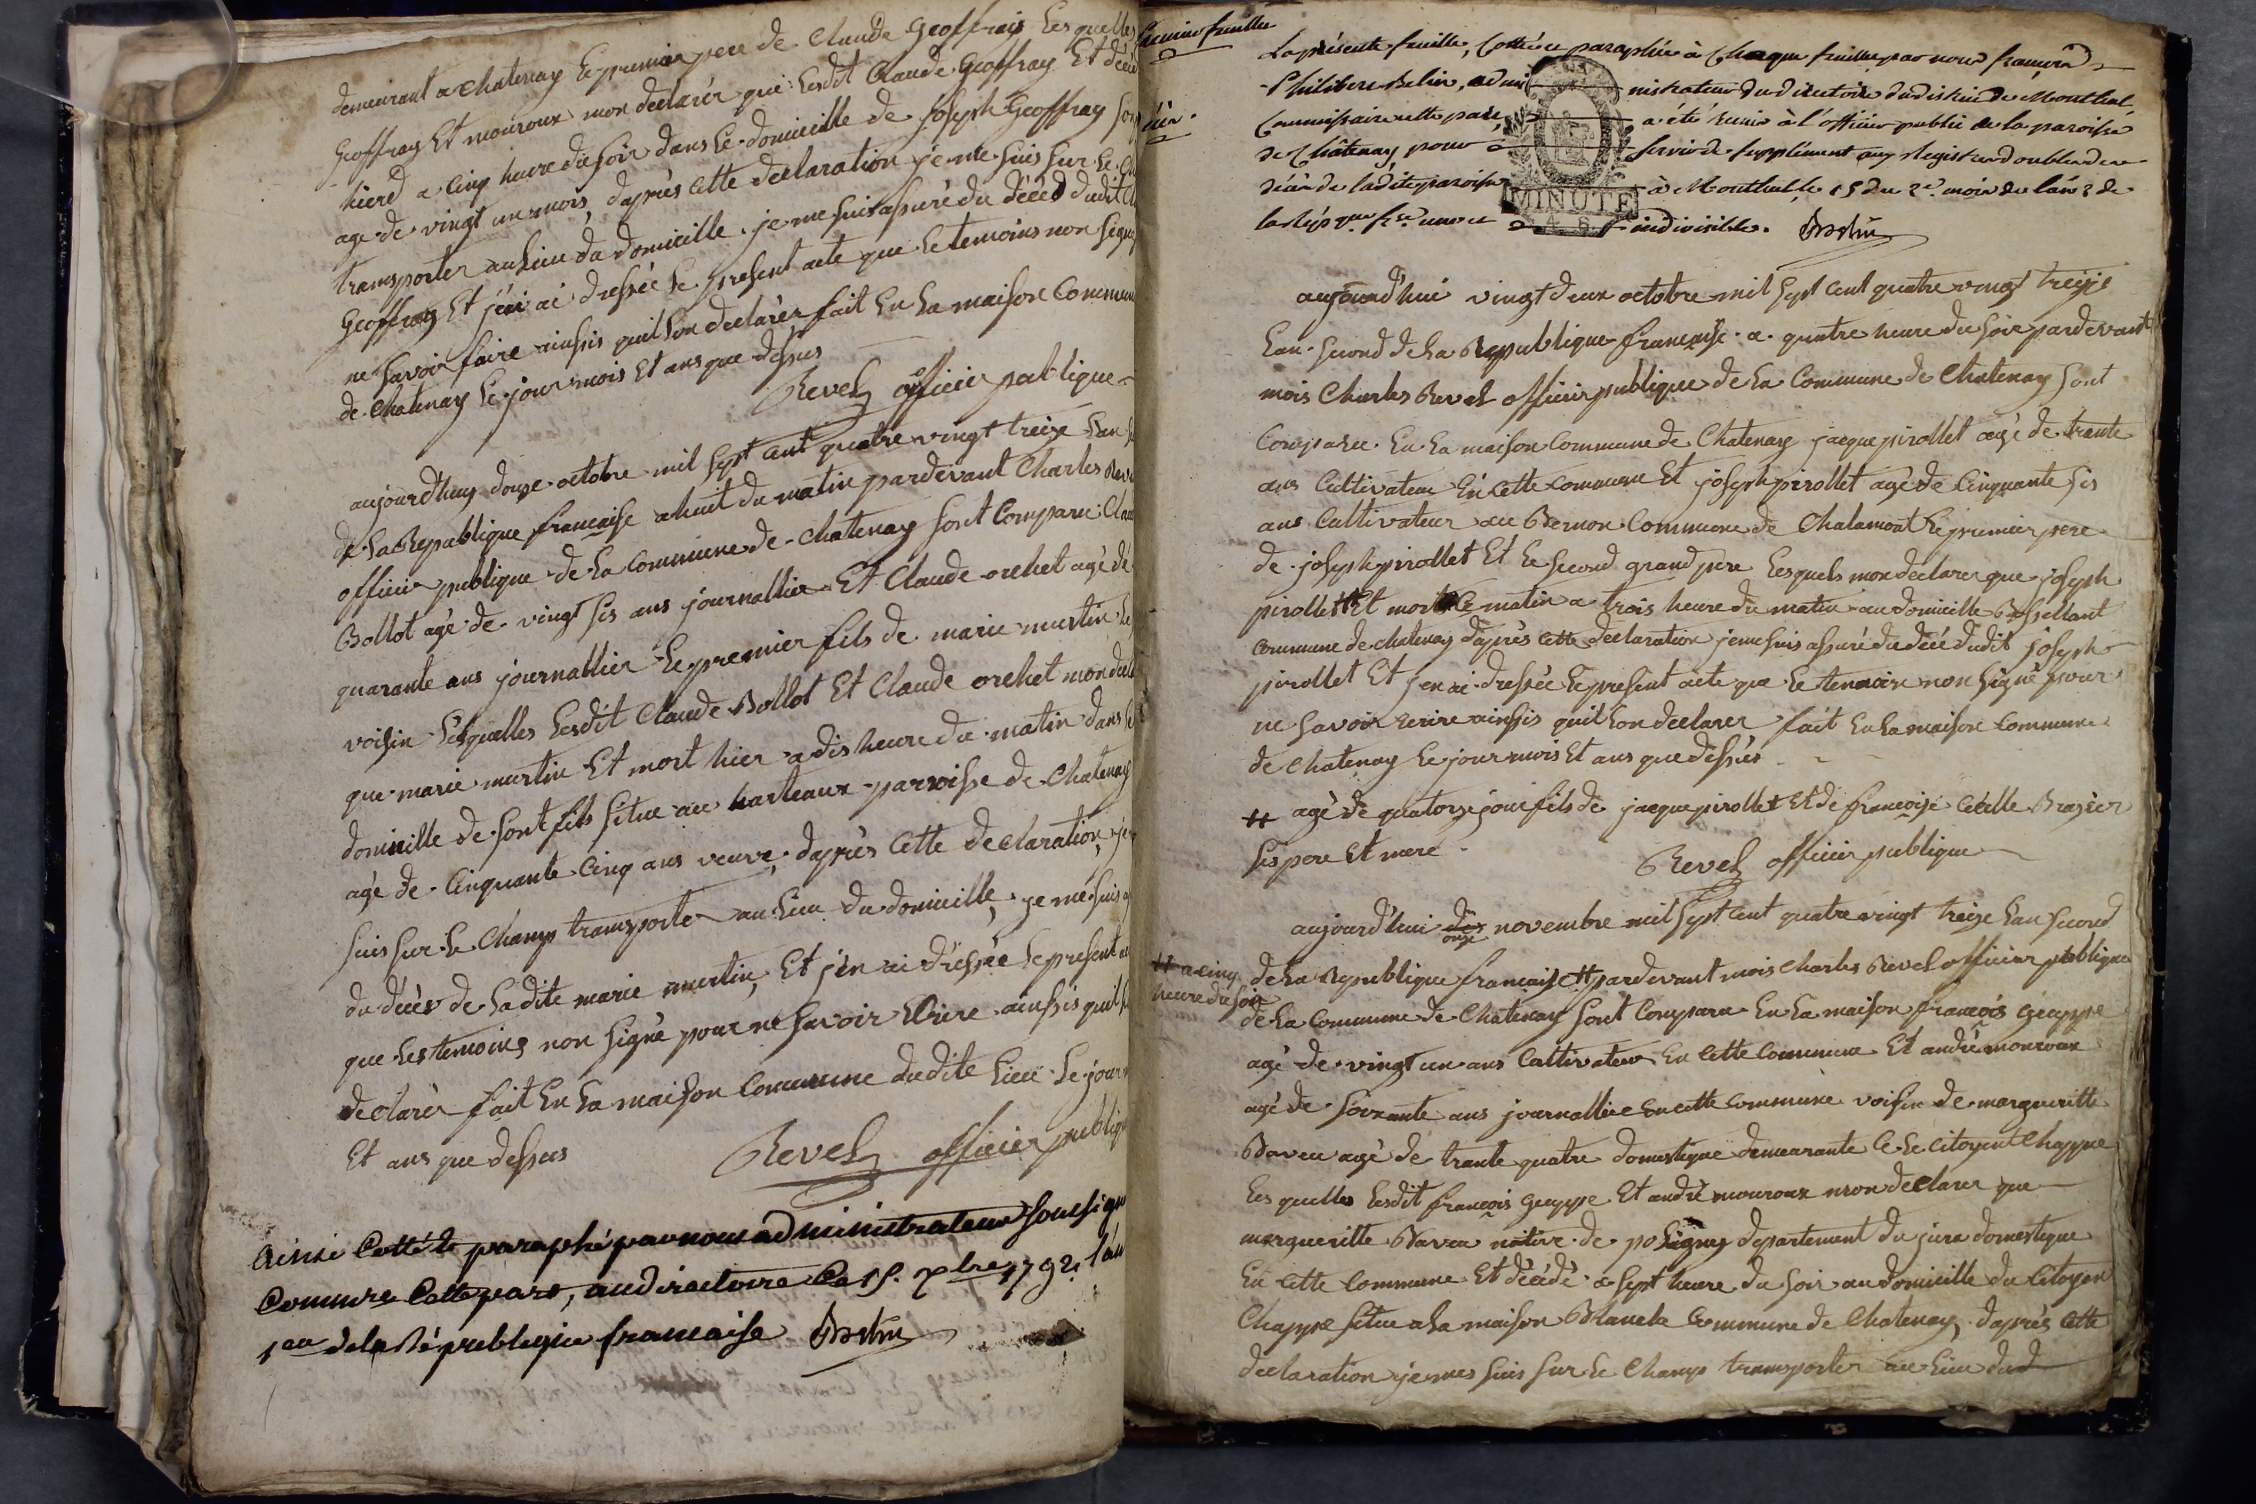 demeurant a chatenay le premier pere de Claude Geoffray Lesquelles
Geoffray Et mouroux mon declarér que Ledit Claude Geoffray Et décéd
hierd a cinq heure du soir dans le domicille de joseph Geoffray son
age de vingt un mois, daprès cette declaration je me suis sur le ch
transporter au Lieu du domicille je me suis asuré du décéd dudit Cl
Geoffray Et jéni ai dressée le present acte que le temoins non signe
ne savoir faire ainsis quil lon declarér fait En La maison Commune
de Chatenay le jour mois Et ans que dessus
Revel officier publique
aujourdhuy douze octobre mil sept cent quatre vingt treize Lan se
de La Republique francaise a huit du matin pardevant Charles Reve
officier publique de La commune de Chatenay sont Comparu Clau
Bollot agé de vingt sis ans journallier Et Claude orchet agé de
quarante ans journallier Le premier fils de marie martin Le
voisin Lesquelles Lesdit Claude Bollot Et Claude orchet mon decla
que marie martin Et mort hier a dis heure du matin dans le
domicille de sont fils situe au harteaux parroisse de Chatenay
agé de Cinquante Cinq ans veuve, daprès Cette declaration, je
suis sur le Champ transporter au Lieu du domicille, je me suis a
du décès de Ladite marie martin, Et j'én ai dressée le present a
que Les temoins non signé pour ne savoir Ecrire ainssis quil l
declarér fait En La maison Commune dudite Lieu le jour m
Et ans que dessus
Revel officier publiq
Ainsi Cotté & paraphé par nous administrateur soussigné
Commre. Cette part, au directoire Ce 15. xbre 1792. L'an
1er de la République francaise Belin
La présente feuille, Cottée et paraphée à Chaque feuille par nous françois
Philibert Belin, admi nistrateur du directoire du district de Montluel,
Commissaire cette part, a été remise à l'officier public de la paroisse
de Châtenay pour servir de supplément aux Registres doubles de
décès de ladite paroisse à Montluel, le 15 du 2e. mois de l'an 2 de
la Répque. frse. une et indivisible. Belin
MINUTE
aujourd'hui vingt deux octobre mil sept cent quatre vingt treize
Lan second de La Republique francaise a quatre heure du soir pardevant
mois Charles Revel officier publique de La Commune de Chatenay sont
Comparu En La maison Commune de Chatenay jacque pirollet agé de trente
ans Cultivateur En cette commune Et joseph pirollet agé de Cinquante sis
ans Cultivateur au Bernon Commune de Chalamont Le premier pere
de joseph pirollet Et Le second grand pere Lesquels mon declarer que joseph
pirollet # Et mort Ce matin a trois heure du matin au domicille
commune de chatenay daprès cette declaration je me suis assuré du décé dudit joseph
pirollet Et j'en ai dressée le present acte que le temoin non signé pour
ne savoir ecrire ainsis quil lon declarer fait En La maison Commune
de Chatenay le jour mois Et ans que dessus
# agé de quatorze jour fils de jacque pirollet Et de francoise Brazier
ses pere Et mere
Revel officier publique
aujourd'hui dix onze novembre mil sept cent quatre vingt treize Lan second
# a cinq heure du soir
de La Republique francaise # pardevant mois Charles Revel officier publique
de La Commune de Chatenay sont Comparu En La maison françois Geuppe
agé de vingt un ans Cultivateur En Cette Commune Et andré mouroux
agé de soixante ans journallier En cette commune voisin de margueritte
Baveu agé de trante quatre domestique demeurante Ce Le Citoyent Chappe
Lesquelles Lesdit françois Geuppe Et andré mouroux mon declarer que
margueritte Baveu native de poligny departement du jura domestique
En Cette Commune Et décédé a sept heure du soir au domicille du Citoyen
Chappe situe a La maison Blanche Commune de Chatenay, daprès cette
declaration je mes suis sur le Champ transporter au Lieu dud